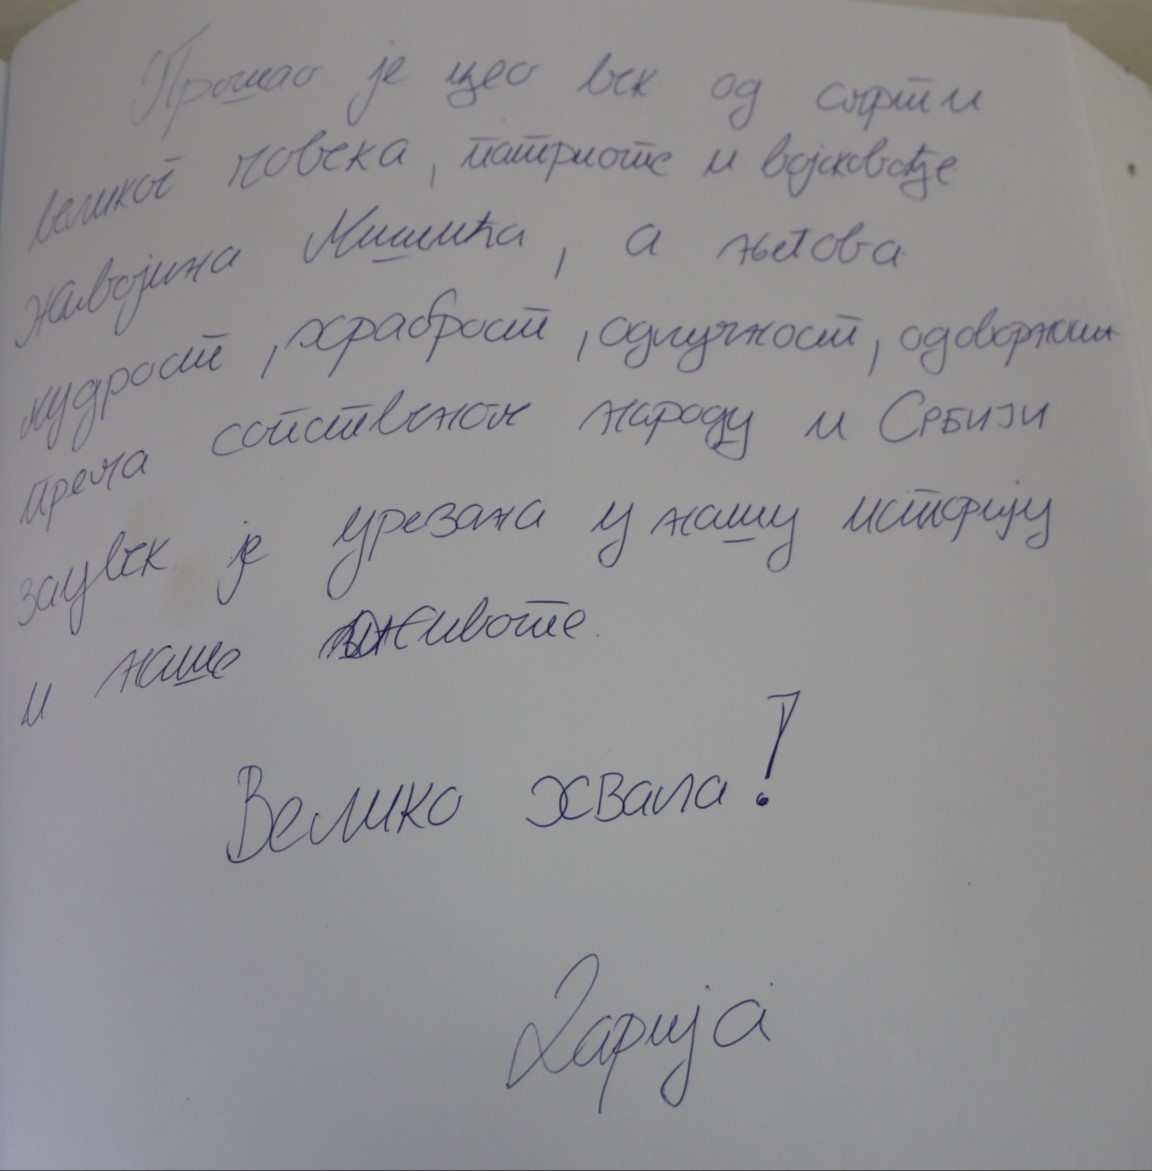 Прошао је цео век од смрти
великог човека, патриоте и војсковође
Живојина Мишића, а његова
мудрост, храброст, одлучност, одговорност
према сопственом народу и СРБИЈИ
заувек је урезана у нашу историју
и наше животе.
Велико хвала!
Дарија